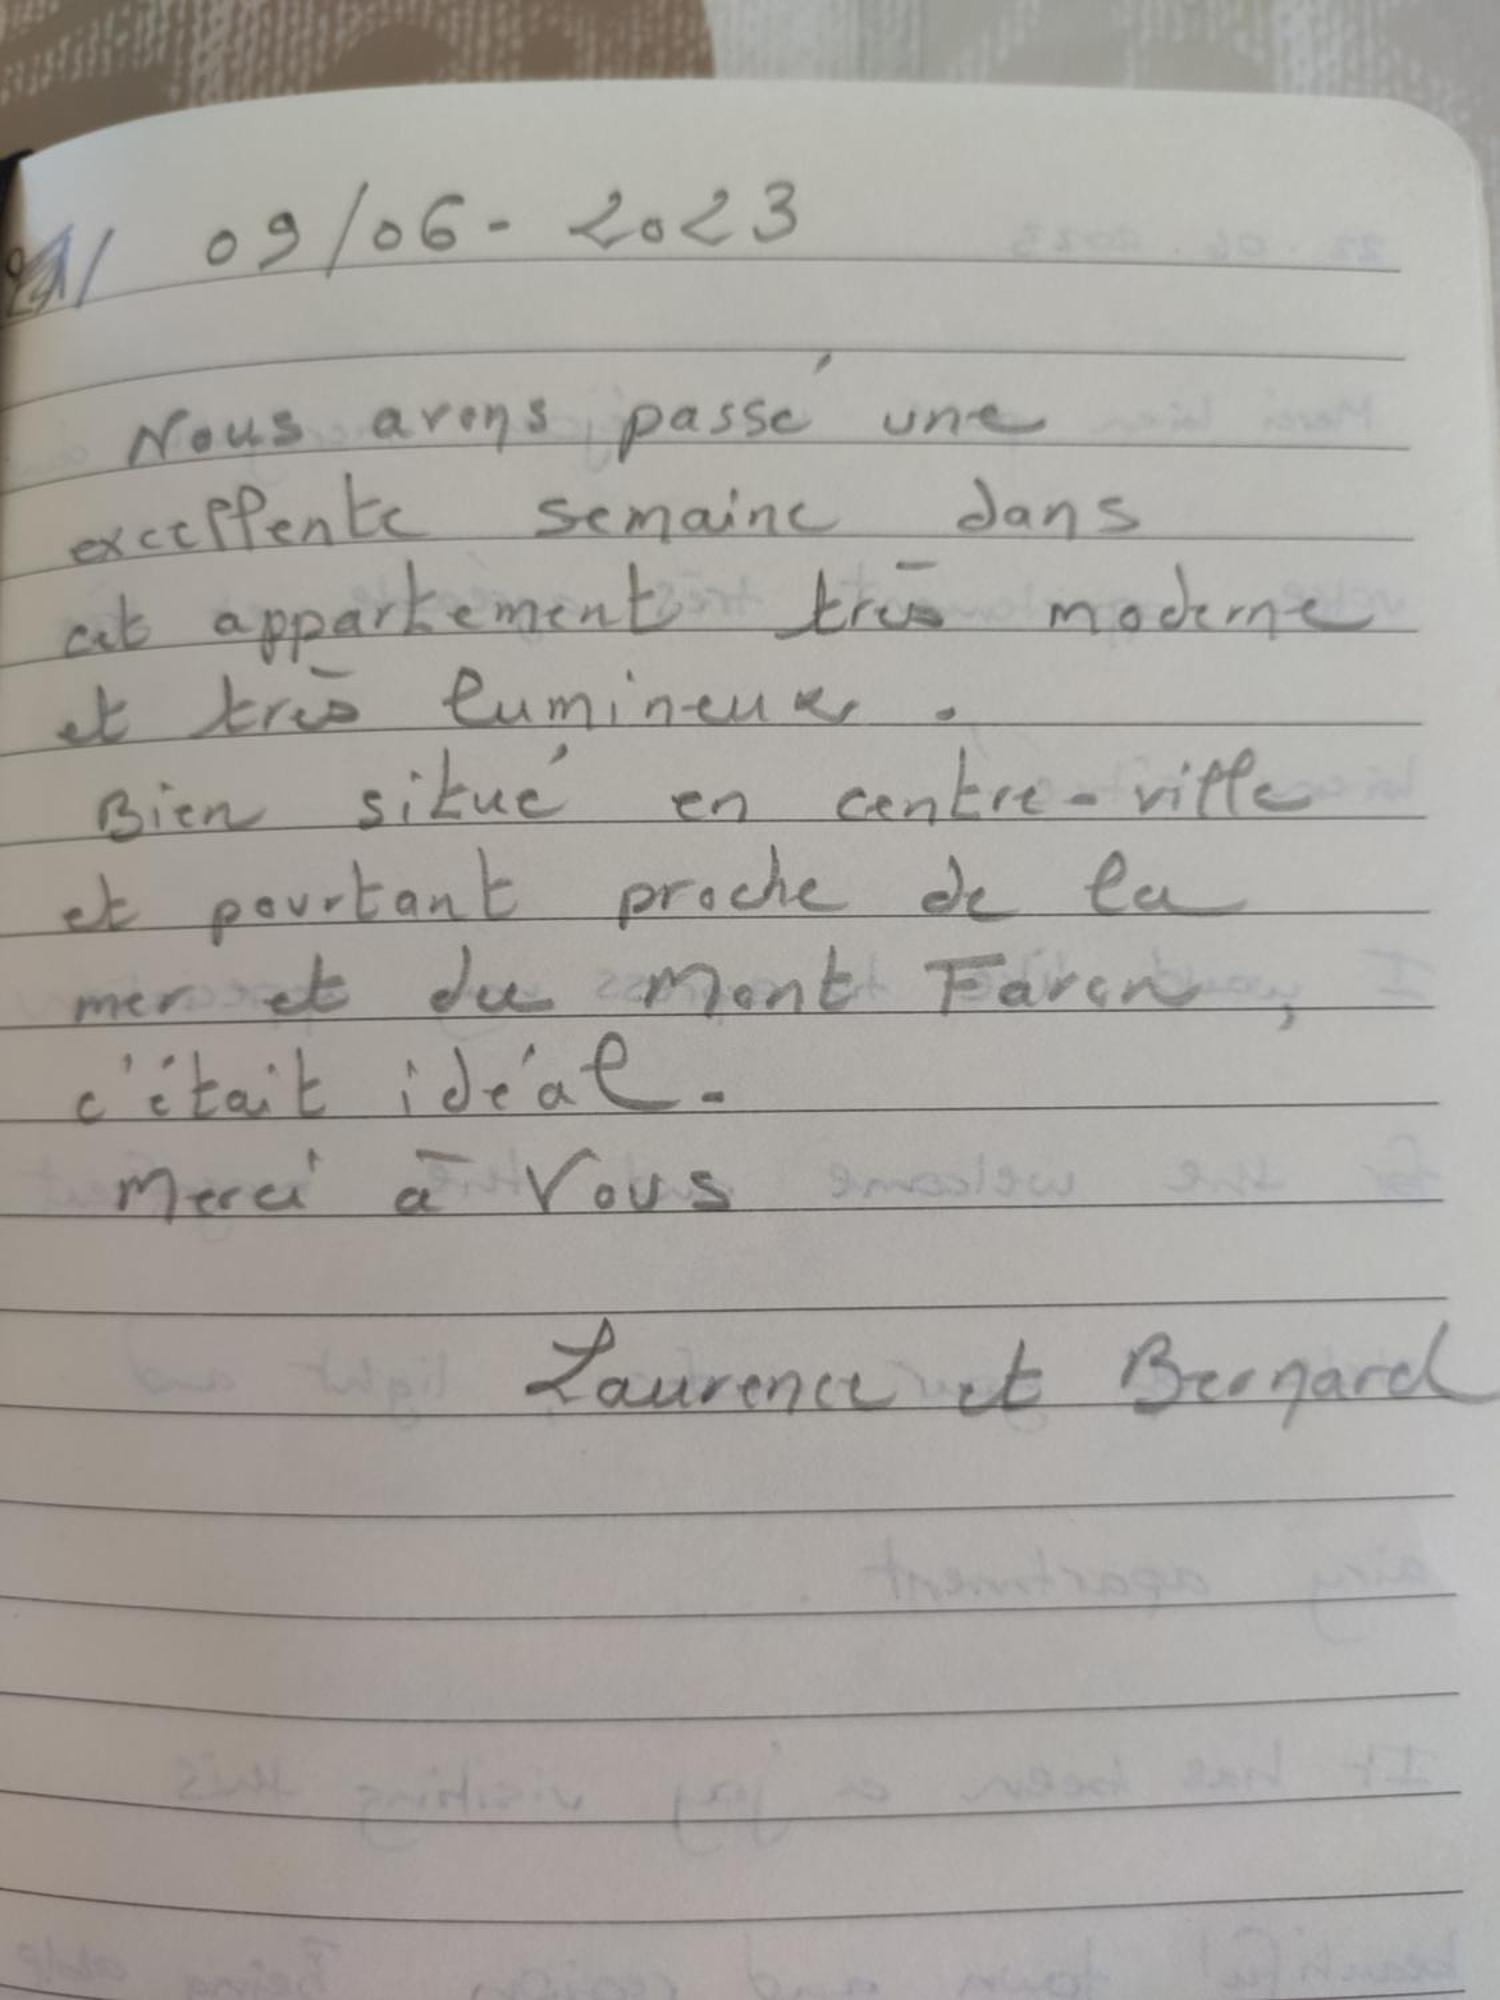 09/06-2023
Nous avons passé une
excellente semaine dans
cet appartement très moderne
et très lumineux.
Bien situé en centre-ville
et pourtant proche de la
mer et du Mont Faron,
c'était idéal.
Merci à Vous
Laurence et Bernard